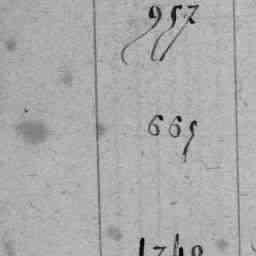 957
665
1748